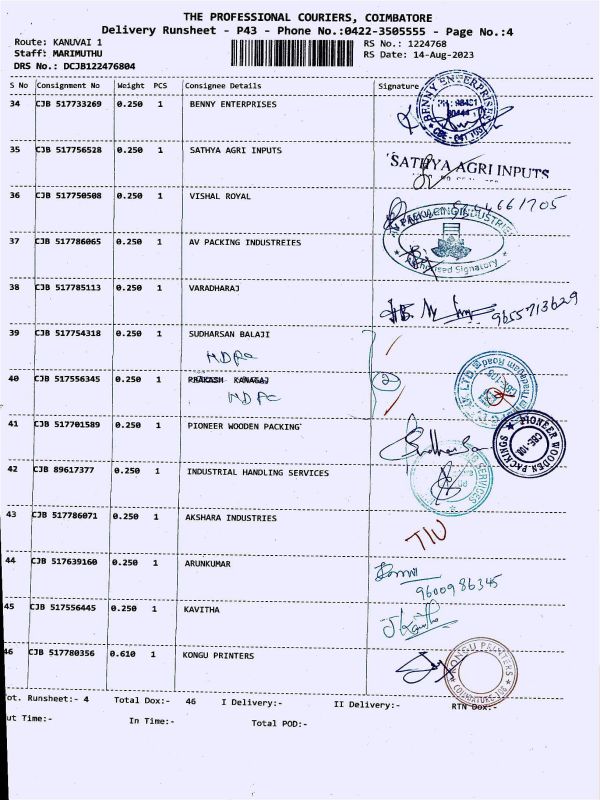 THE PROFESSIONAL COURIERS, COIMBATORE
Delivery Runsheet - P43 - Phone No.:0422-3505555 - Page No.:4
Route: KANUVAI 1 RS No.: 1224768
Staff: MARIMUTHU RS Date: 14-Aug-2023
DRS No.: DCJB122476804
S No Consignment No Weight PCS Consignee Details Signature
34 CJB 517733269 0.250 1 BENNY ENTERPRISES
BENNY ENTERPRISES
35 CJB 517756528 0.250 1 SATHYA AGRI INPUTS
SATHYA AGRI INPUTS
36 CJB 517750508 0.250 1 VISHAL ROYAL
37 CJB 517786065 0.250 1 AV PACKING INDUSTREIES
AV PACKAGING INDUSTRIES
Authorised Signatory
38 CJB 517785113 0.250 1 VARADHARAJ
9655713629
39 CJB 517754318 0.250 1 SUDHARSAN BALAJI
40 CJB 517556345 0.250 1 PRAKASH KANAGAJ
2
41 CJB 517701589 0.250 1 PIONEER WOODEN PACKING
PIONEER WOODEN PACKINGS
CBE-108
42 CJB 89617377 0.250 1 INDUSTRIAL HANDLING SERVICES
SERVICES
43 CJB 517786071 0.250 1 AKSHARA INDUSTRIES
44 CJB 517639160 0.250 1 ARUNKUMAR
9600986345
45 CJB 517556445 0.250 1 KAVITHA
46 CJB 517780356 0.610 1 KONGU PRINTERS
KONGU PRINTERS
ot. Runsheet:- 4 Total Dox:- 46 I Delivery:- II Delivery:- RTN Dox:-
ut Time:- In Time:- Total POD:-